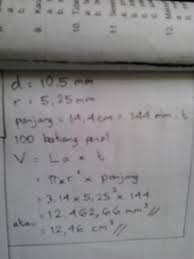 d = 10,5 mm
r = 5,25 mm
panjang = 14,4 cm = 144 mm = t
100 batang
V = La × t
= π × r² × panjang
= 3,14 × 5,25² × 144
= 12.462,66 mm³ //
atau = 12,46 cm³ //